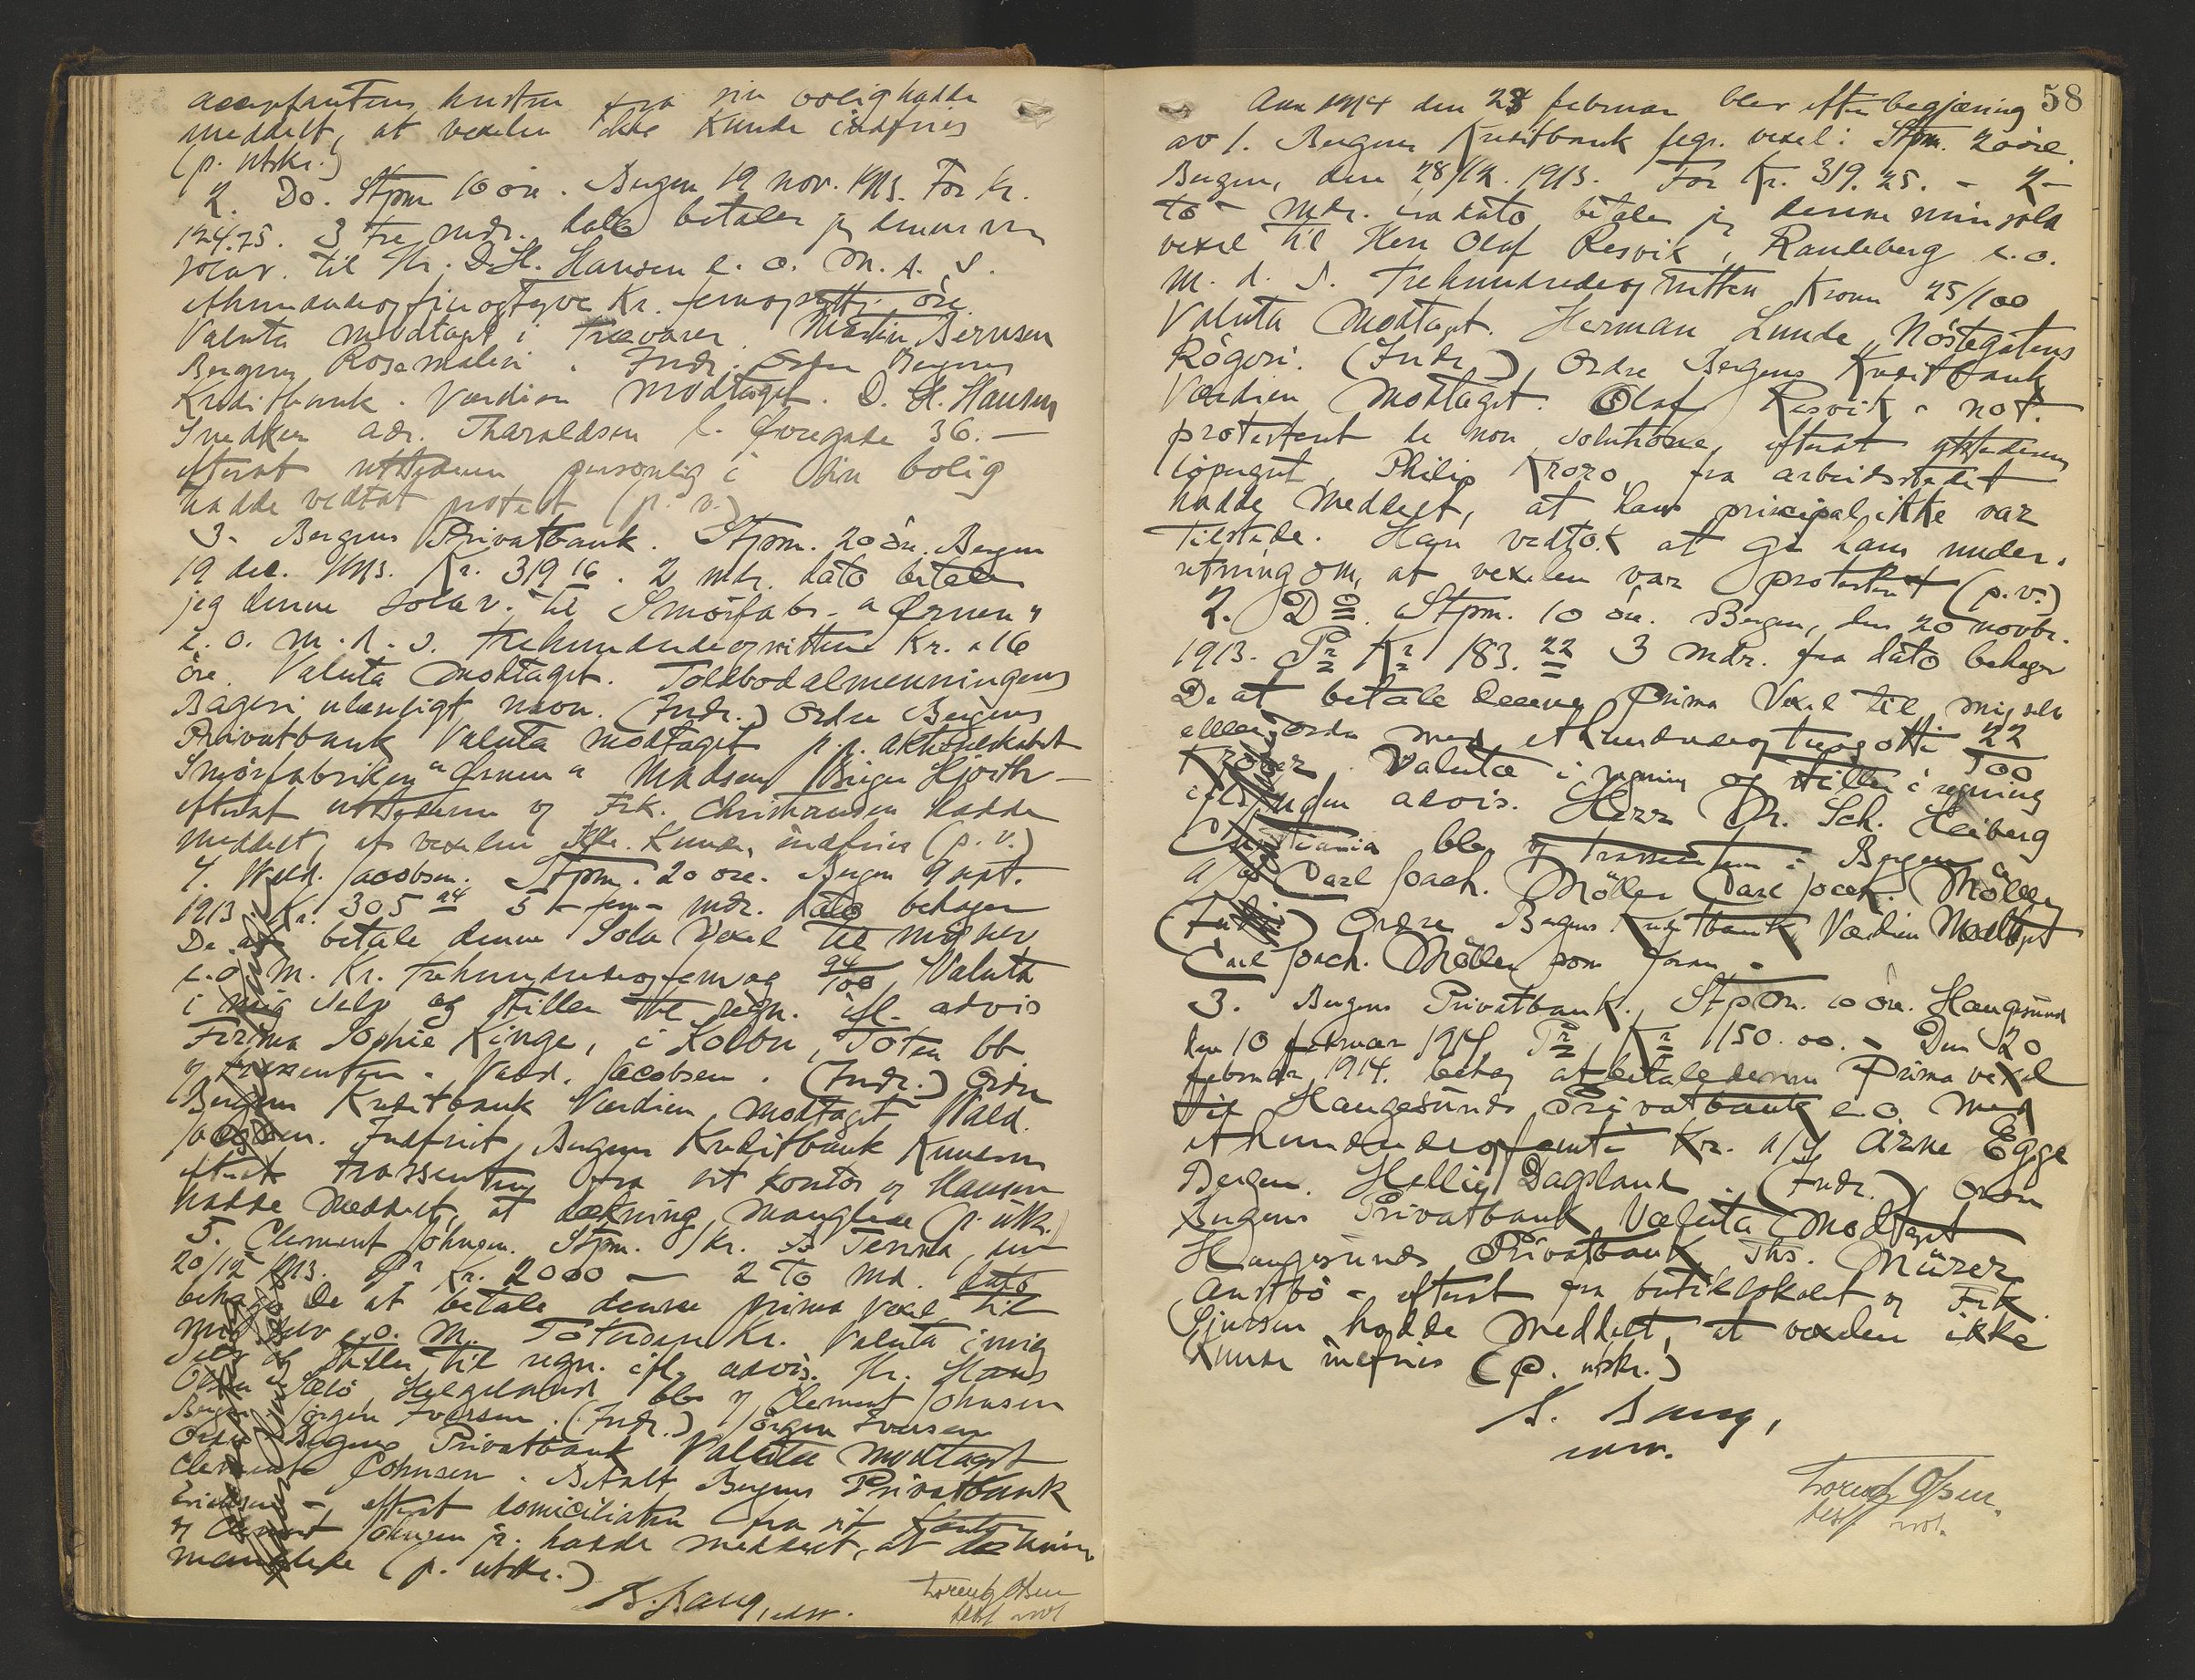 acceptantens hustru fra sin bolig hadde
meddelt, at vexelen ikke kunde indfries
(p. utskr.)
2. Do. Stpm 10 öre. Bergen 19 nov. 1913. For Kr.
124.75. 3 tre mdr. dato betaler jeg denne min
solav. til Hr. D. H. Hansen e. o. m. d. s.
ethundredeogfireogtyve Kr. femogsytti öre
Valuta modtaget i Trævarer. Martin Berntsen
Bergens Rosemaleri. Indr. Ordre Bergens
Kreditbank. Værdien modtaget. D. H. Hansen
Snedker adr. Tharaldsen Øvregade 36. —
efterat utstederen personlig i sin bolig
hadde vedtat protest (p. v.)
3. Bergens Privatbank. Stpm. 20 öre. Bergen
19 dec. 1913. Kr. 319 16. 2 mdr. dato betaler
jeg denne solav. til Smörfabr. "Ørnen"
e. o. m. d. s. trehundredeognitten Kr. 16
öre. Valuta modtaget. Toldbodalmenningens
Bageri ulæseligt navn. (Indr.) Ordre Bergens
Privatbank Valuta modtaget p.p. aktieselskabet
Smörfabriken "Ørnen" Madsen Birger Hjorth —
efterat utstederen v Frk. Christiansen hadde
meddelt, at vexelen ikke kunde indfries (p. v.)
4. Wald. Jacobsen. Stpm. 20 öre. Bergen 9 sept.
1913 Kr. 305 94 5 - fem - mdr. dato behager
De at betale denne Sola Vexel til mig selv
e. o. m. Kr. trehundredeogfem og 94/100 Valuta
i mig selv og stilles til regn. ifl. advis
Firma Sophie Kinge, i Kolbu, Toten bb
v trassenten. Wald. Jacobsen. (Indr.) Ordre
Bergens Kreditbank Værdien modtaget Wald.
Jacobsen. Indfriet Bergens Kreditbank
efterat trassenten fra sit kontor v Hansen
hadde meddelt, at dækning manglede (p. utskr.)
5. Clement Johnsen. Stpm. 1 kr. Tenna, den
20/12 1913. Pr Kr. 2000 — 2 to md. dato
behager De at betale denne prima vexel til
mig selv e. o. m. Totusen Kr. Valuta i mig
selv og stilles til regn. ifl. advis. Hr. Hans
Olsen Helgeland bb v Clement Johnsen
Bergen Jørgen Iversen. (Indr.) Jörgen Iversen
Ordre Bergens Privatbank Valuta modtaget
Clement Johnsen. Betalt Bergens Privatbank
Erichsen -, efterat domiciliaten fra sit kontor
v Clement Johnsen jr. hadde meddelt, at dækning
manglede (p. utskr.)
B. Bang, edsv.
Lorentz Olsen
58
Aar 1914 den 28 februar blev efter begjæring
av 1. Bergens Kreditbank fegr. vexel: Stpm. 20 öre.
Bergen, den 28/12. 1913. For Kr. 319.25. - 2 -
to - mdr. fra dato betaler jeg denne min sola
vexel til Herr Olaf Resvik, Randeberg e. o.
m. d. s. Trehundredeognitten Kroner 25/100
Valuta Modtaget. Herman Lunde, Nöstegatens
Rögeri. (Indr.) Ordre Bergens Kreditbank
Værdien modtaget. Olaf Resvik - not.
protestert de non solutione, efterat utstederens
löpegut, Philip Kroro, fra arbeidsstedet
hadde meddelt, at hans principal ikke var
tilstede. Han vedtok at gi ham under-
retning om, at vexelen var protestert (p. v.)
2. Do. Stpm. 10 öre. Bergen, den 20 novbr.
1913. Pr Kr 183.22 3 mdr. fra dato behager
De at betale denne Prima Vexel til mig selv
eller ordre med ethundredeogtreogotti 22/100
Kroner. Valuta i regning og stilles i regning
ifl. uden advis. Herr Dr. Sch. Heiberg
Christiania bb v trassenten i Bergen
a/s Carl Joach. Möller Carl Joach. Möller
(Indr.) Ordre Bergens Kreditbank Værdien Modtaget
Carl Joach. Möller som foran -
3. Bergens Privatbank. Stpm. 10 öre. Haugesund
den 10 februar 1914. Pr Kr 150.00. - Den 20
februar 1914. behag at betale denne Prima vexel
til Haugesunds Privatbank e. o. med
ethundredeogfemti Kr. a/s Arne Egge
Bergen. Hellig Dagsland. (Indr.) Ordre
Bergens Privatbank Valuta Modtaget
Haugesunds Privatbank Ths. Mürer
Austbö - efterat fra butiklokalet v Frk.
Gjersen hadde meddelt, at vexelen ikke
kunde indfries (p. utskr.)
B. Bang,
edsv.
Lorentz Olsen.